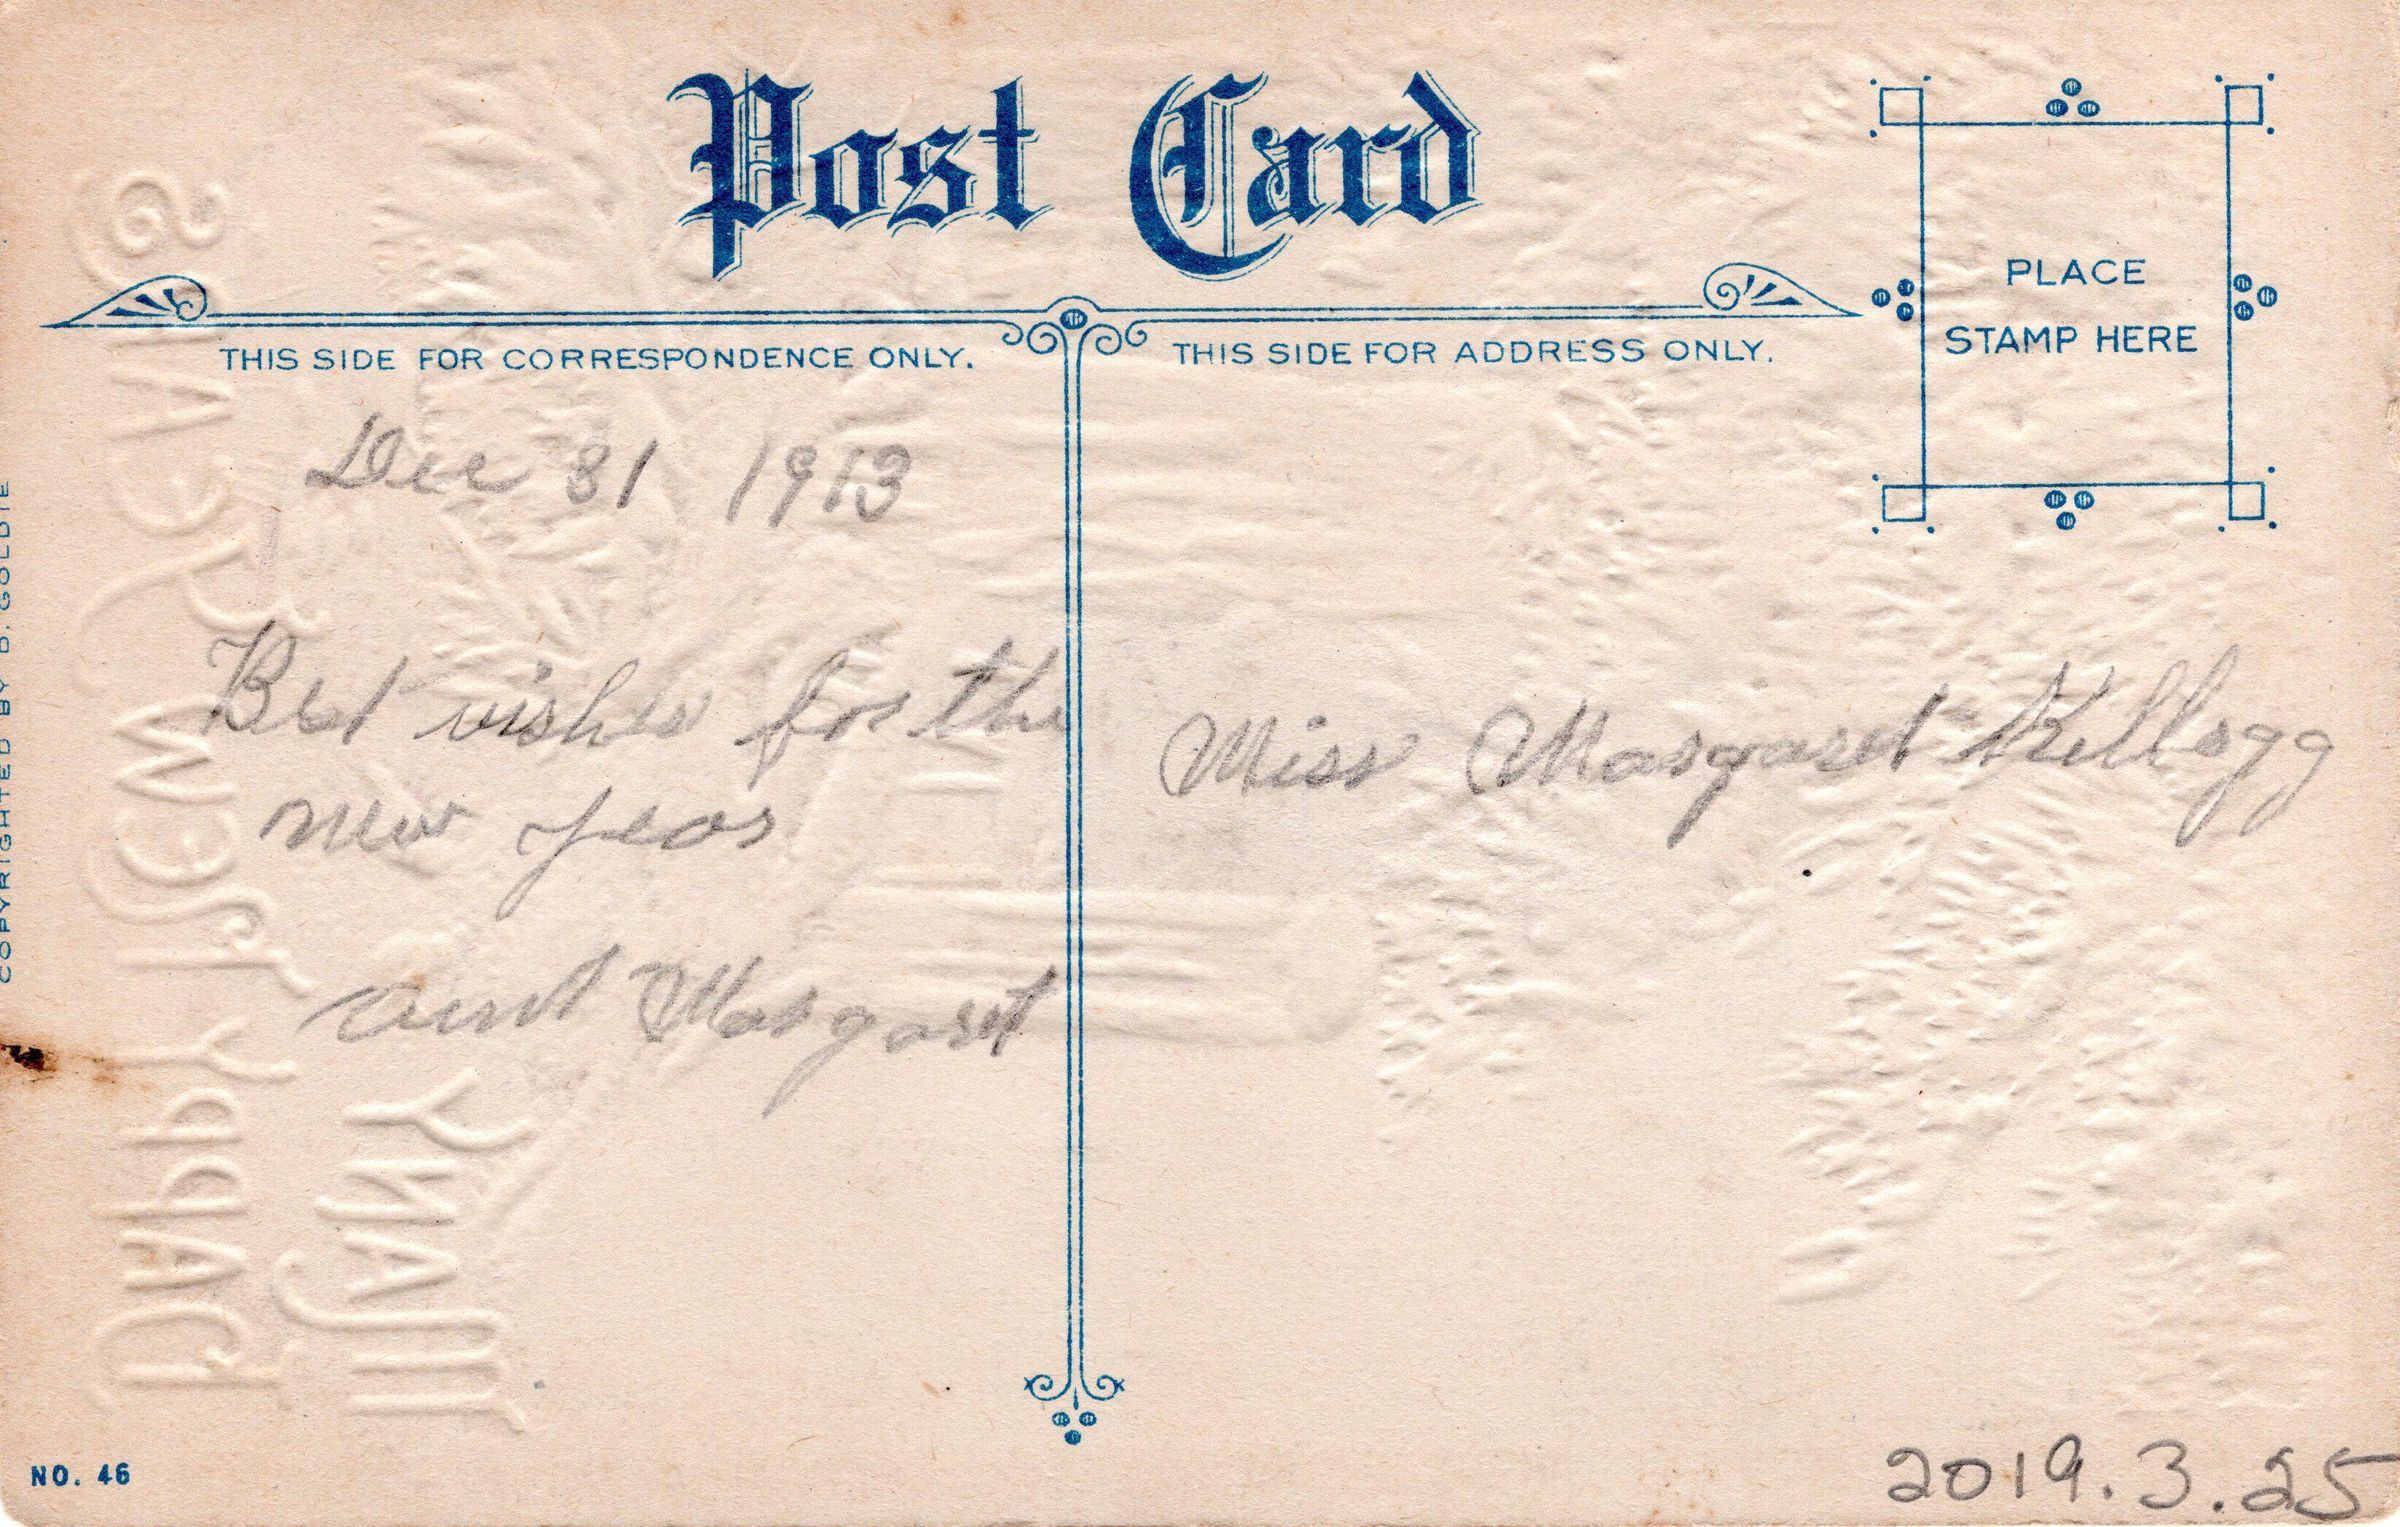 Post Card
PLACE
STAMP HERE
THIS SIDE FOR CORRESPONDENCE ONLY.
THIS SIDE FOR ADDRESS ONLY.
Dec 31 1913
Best wishes for the
new year
aunt Margaret
Miss Margaret Kellogg
COPYRIGHTED BY D. GOLDIE
NO. 46
2019.3.25